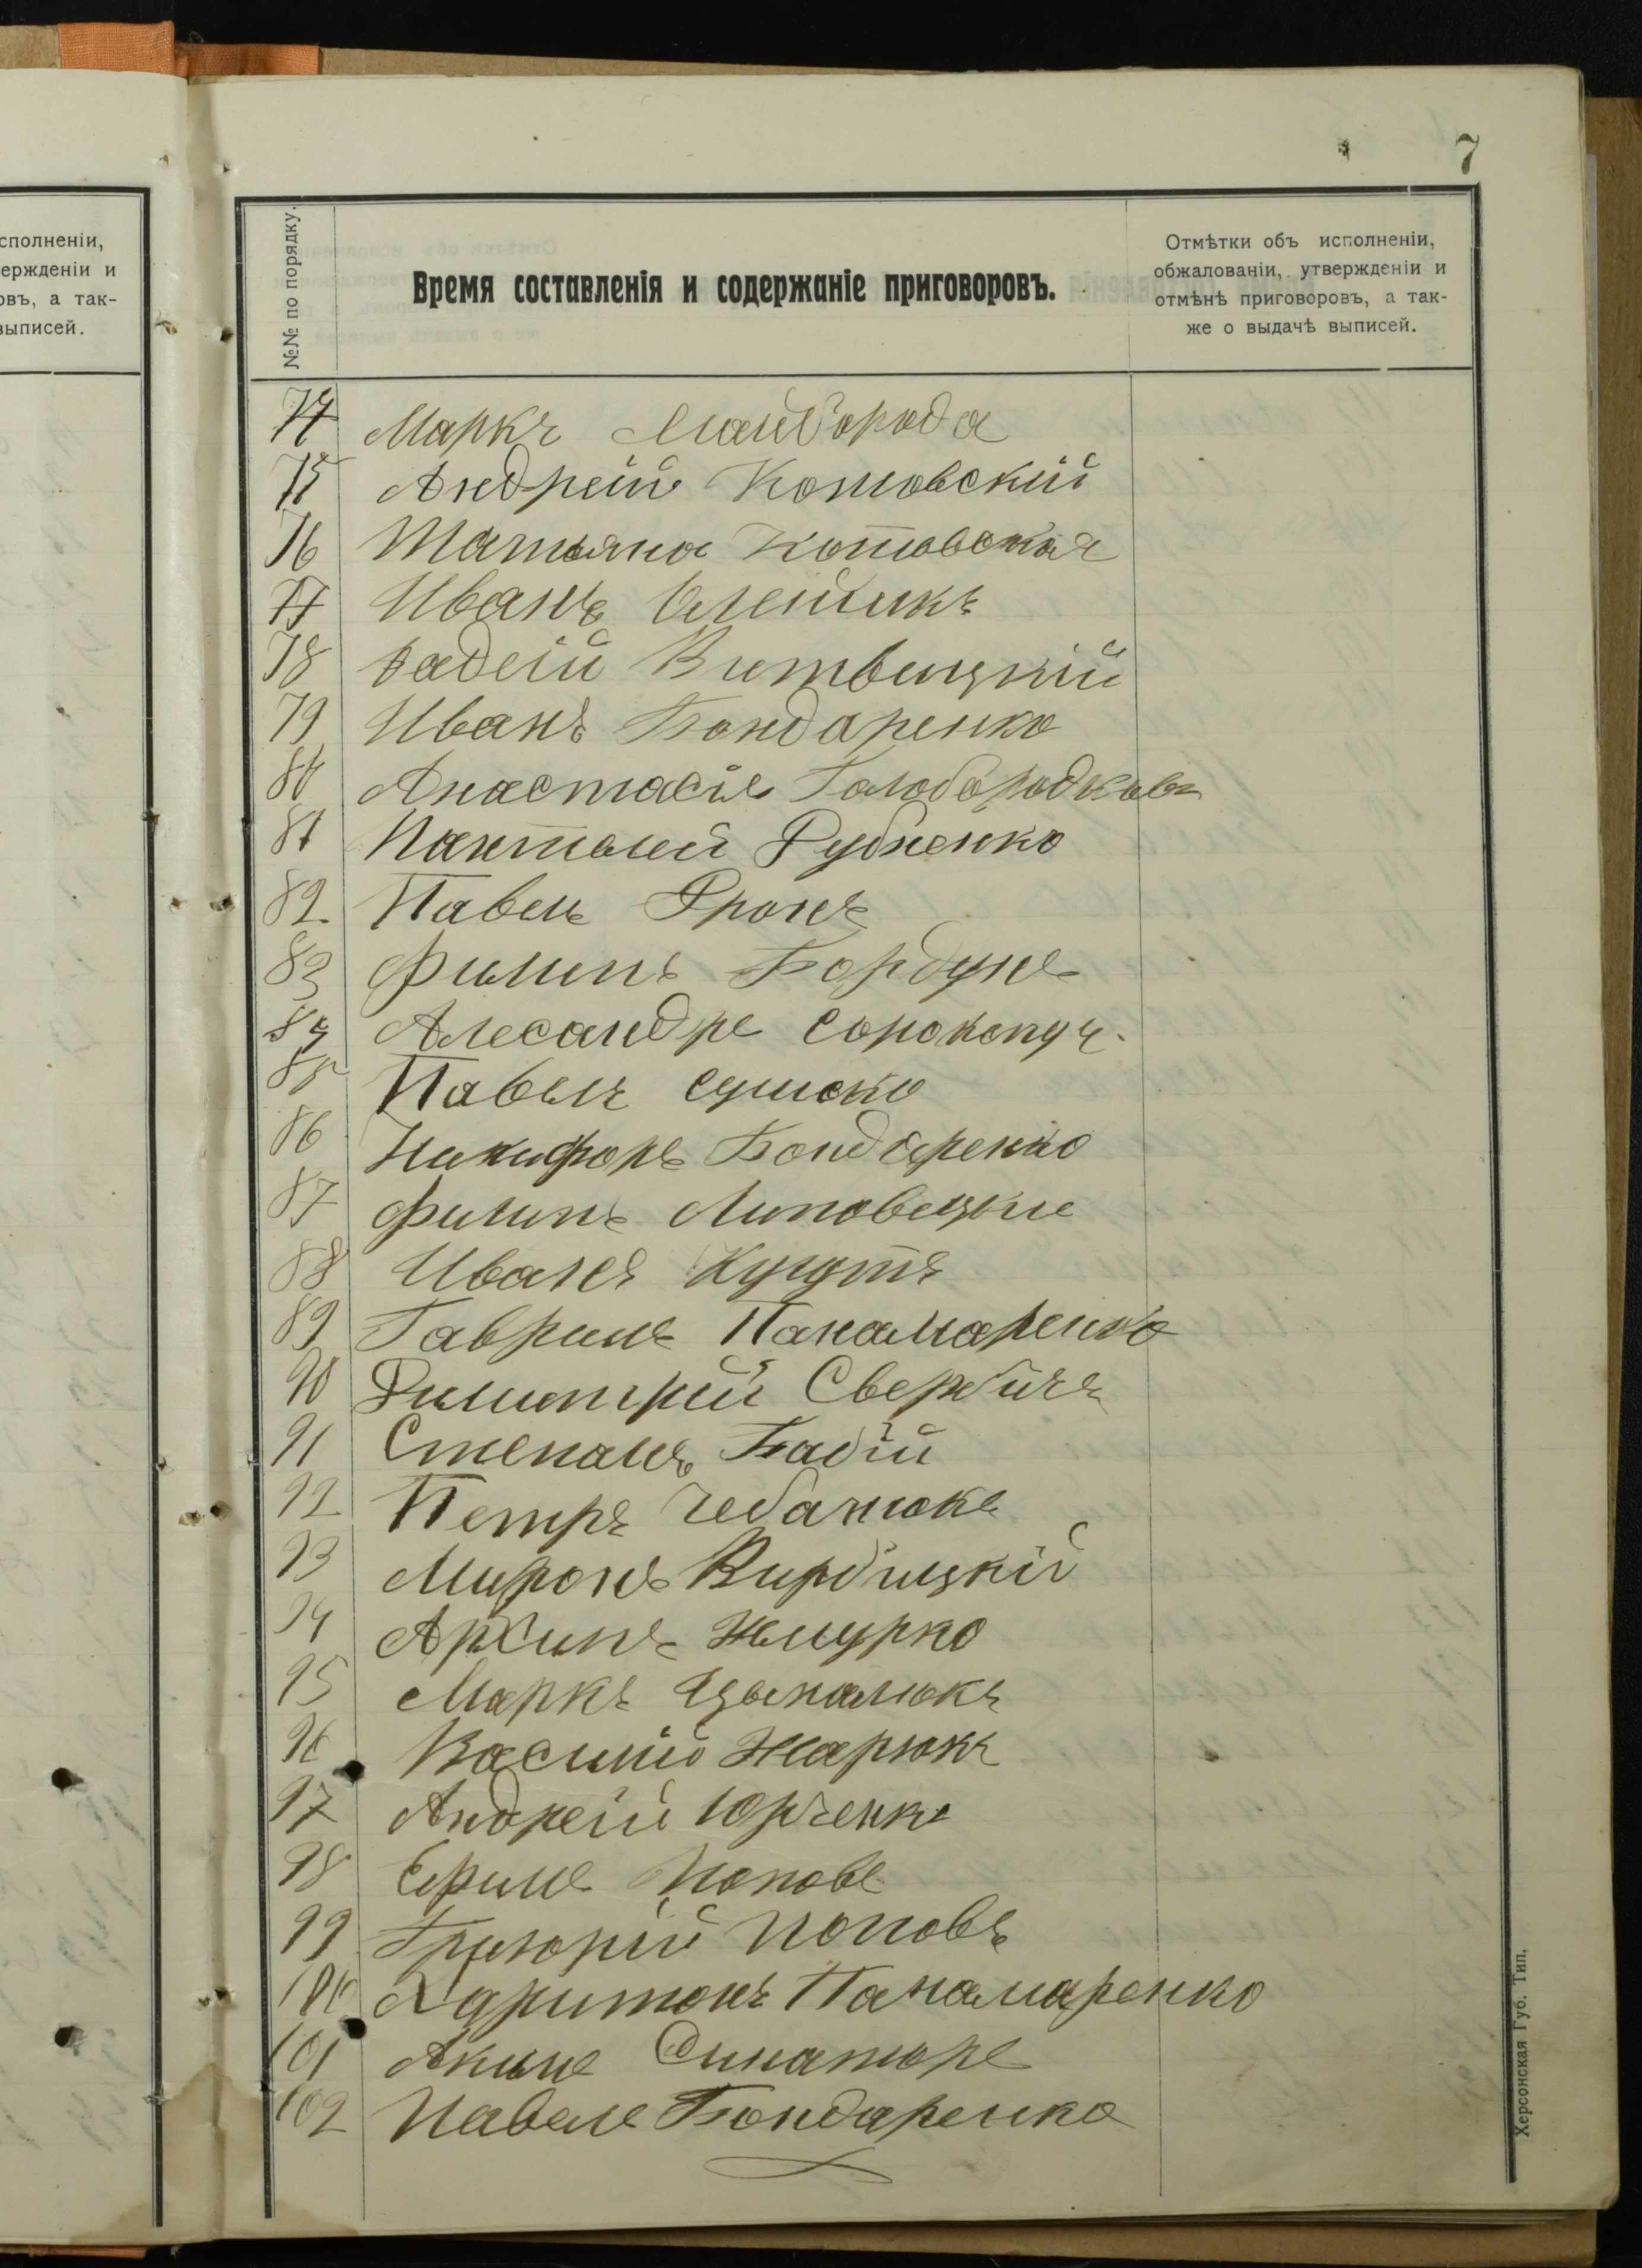 сполненіи,
ержденіи и
овъ, а так-
выписей.
7
№№ по порядку.
Время составленія и содержаніе приговоровъ.
Отмѣтки объ исполненіи,
обжалованіи, утвержденіи и
отмѣнѣ приговоровъ, а так-
же о выдачѣ выписей.
74 Маркъ Майборода
75 Андрей Котовскій
76 Татьяна Котовская
77 Иванъ Олейникъ
78 Фадей Витвицкій
79 Иванъ Бондаренко
80 Анастасія
81 Пантелей
82 Павелъ
83 Филипъ Бордунъ
84 Алесандръ Сорокопудъ
85 Павелъ Сушко
86 Никифоръ Бондаренко
87 Филипъ Липовецкие
88 Иванъ
89 Гаврилъ Панамаренко
90 Димитрий
91 Степанъ Бабій
92 Петръ Чебанюкъ
93 Миронъ Вирбицкій
94 Жмурко
95 Маркъ Цымалюкъ
96 Василий Жарюкъ
97 Андрей Юрченко
98 Ефимъ Поповъ
99 Григорій Поповъ
100 Харитонъ Панамаренко
101 Акимъ Синаторъ
102 Павелъ Бондаренко
Херсонская Губ. Тип.